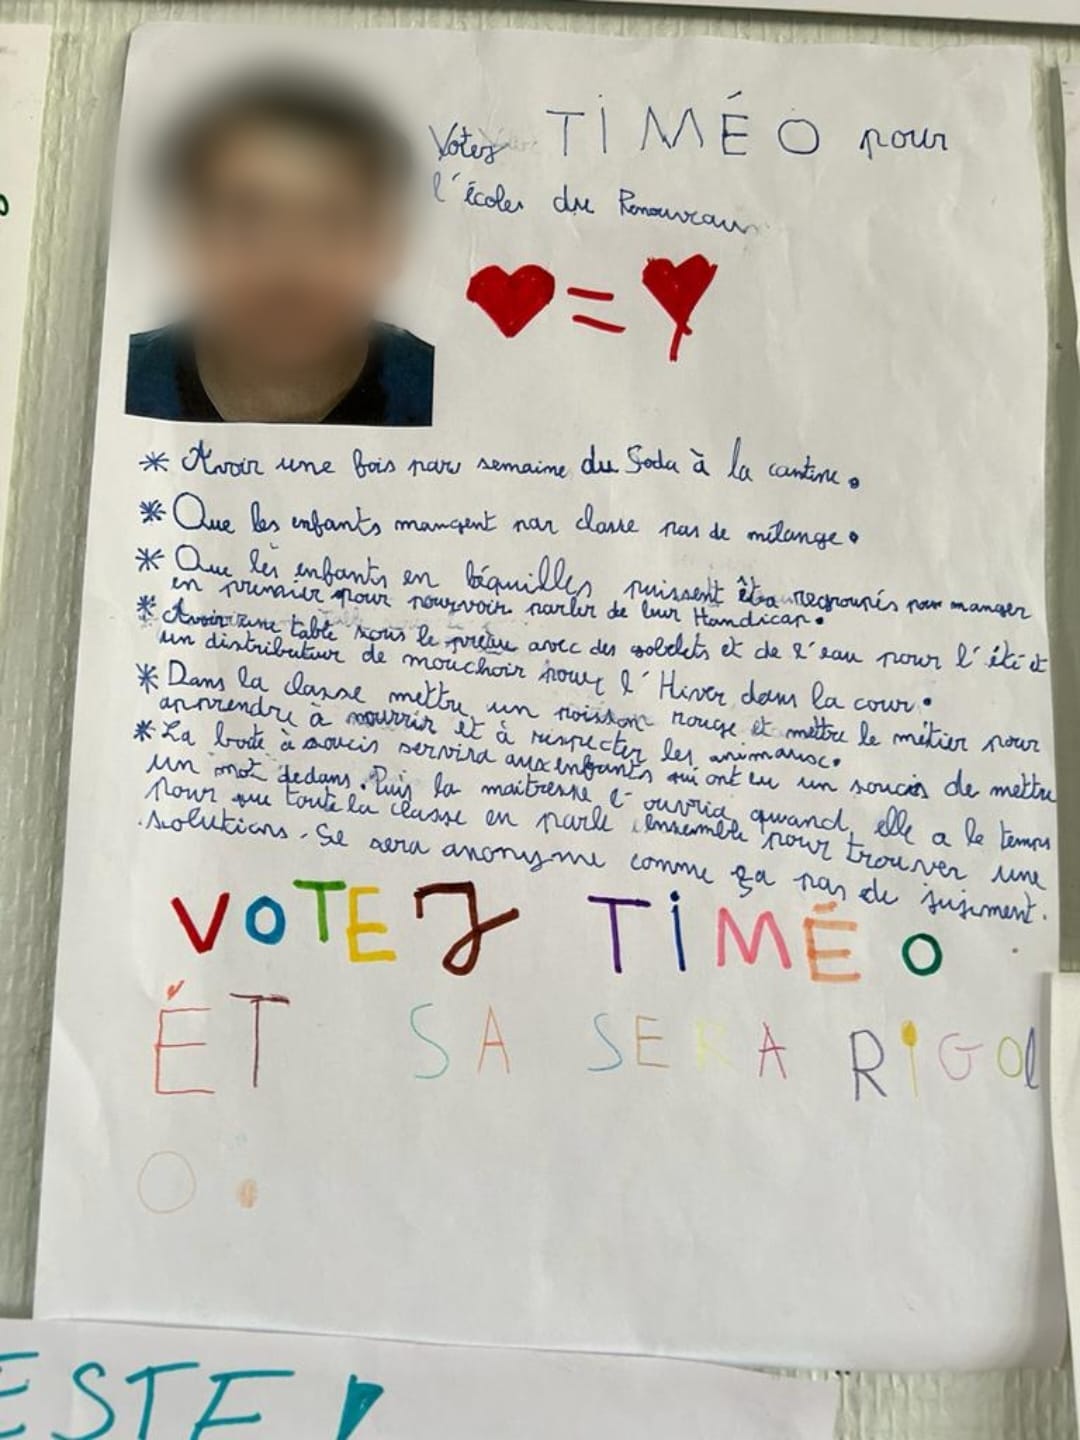 Votez TIMÉO pour
l'écoles du Renouveau
=
* Avoir une fois par semaine du Soda à la cantine.
* Que les enfants mangent par classe pas de mélange.
* Que les enfants en béquilles puissent être regroupés pour manger
en premier pour pourvoir parler de leur Handicap.
* Avoir une table sous le préau avec des gobelets et de l'eau pour l'été et
un distributeur de mouchoir pour l'Hiver dans la cour.
* Dans la classe mettre un poisson rouge et mettre le métier pour
apprendre à nourrir et à respecter les animaux.
* La boite à soucis servira aux enfants qui ont eu un soucis de mettre
un mot dedans. Puis la maitresse l'ouvrira quand elle a le temps
pour que toute la classe en parle ensemble pour trouver une
solutions. Se sera anonyme comme ça pas de jujement.
VOTEZ TIMÉO
ÉT SA SERA RIGOl
O.
ESTE !